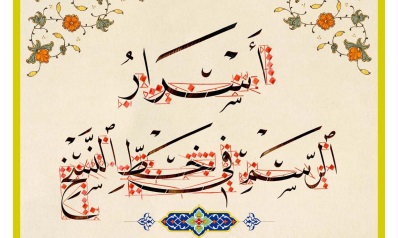 أَسْرَارُ
الرَّسْمِ فِي خَطِّ النَّسْخِ